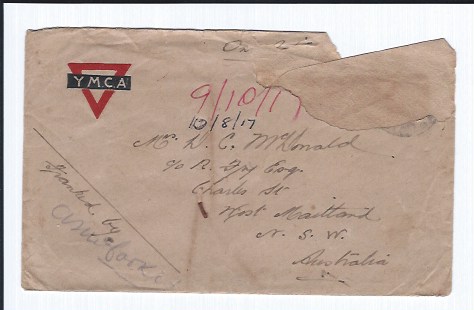 On
Y.M.C.A
9/10/17
12/8/17
Mr. D. C. McDonald
c/o R. Guy Esq.
Charles St
West Maitland
N. S. W.
Australia
Franked by